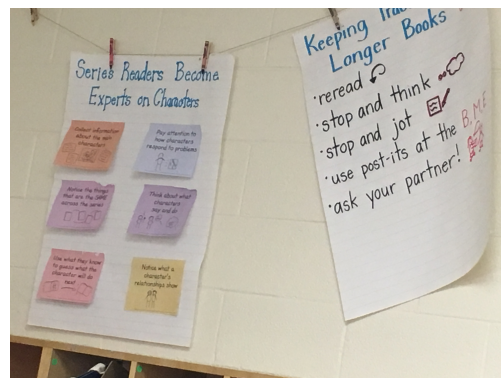 Series Readers Become
Experts on Characters
Collect information
about the main
characters
Pay attention to
how characters
respond to problems
Notice the things
that are the SAME
across the series
Think about what
characters
say and do
Use what they know
to guess what the
character will do
next
Notice what a
character's
relationships show
Keeping
Longer Books
·reread
·stop and think
·stop and jot
·use post-its at the B.M.E
·ask your partner!